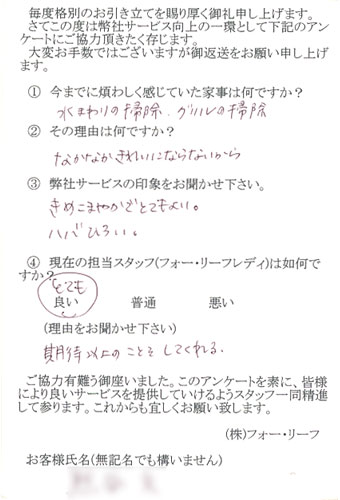 毎度格別のお引き立てを賜り厚く御礼申し上げます。
さてこの度は幣社サービス向上の一環として下記のアン
ケートにご協力頂きたく存じます。
大変お手数ではございますが御返送をお願い申し上げ
ます。
① 今までに煩わしく感じていた家事は何ですか?
水まわりの掃除、グリルの掃除
② その理由は何ですか?
なかなかきれいにならないから
③ 弊社サービスの印象をお聞かせ下さい。
きめこまやかでとてもよい。
ハバひろい。
④ 現在の担当スタッフ(フォー・リーフレディ)は如何で
すか?
とても
良い 普通 悪い
(理由をお聞かせ下さい)
期待以上のことをしてくれる。
ご協力有難う御座いました。このアンケートを素に、皆様
により良いサービスを提供していけるようスタッフ一同精進
して参ります。これからも宜しくお願い致します。
(株)フォー・リーフ
お客様氏名(無記名でも構いません)